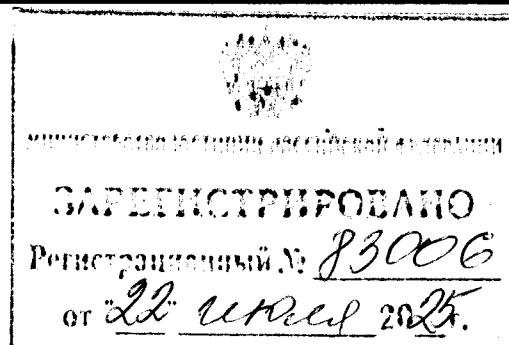 МИНИСТЕРСТВО ЮСТИЦИИ РОССИЙСКОЙ ФЕДЕРАЦИИ
ЗАРЕГИСТРИРОВАНО
Регистрационный № 83006
от "22" июля 2025г.